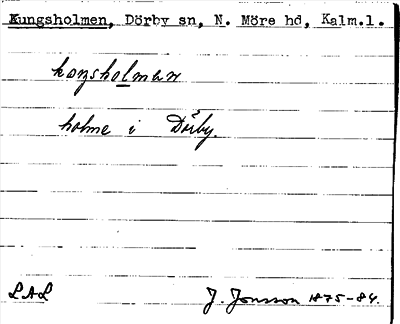 Kungsholmen, Dörby sn, N. Möre hd, Kalm.l.
kongsholman
holme i Dörby.
LAL J. Jonsson 1875-84.